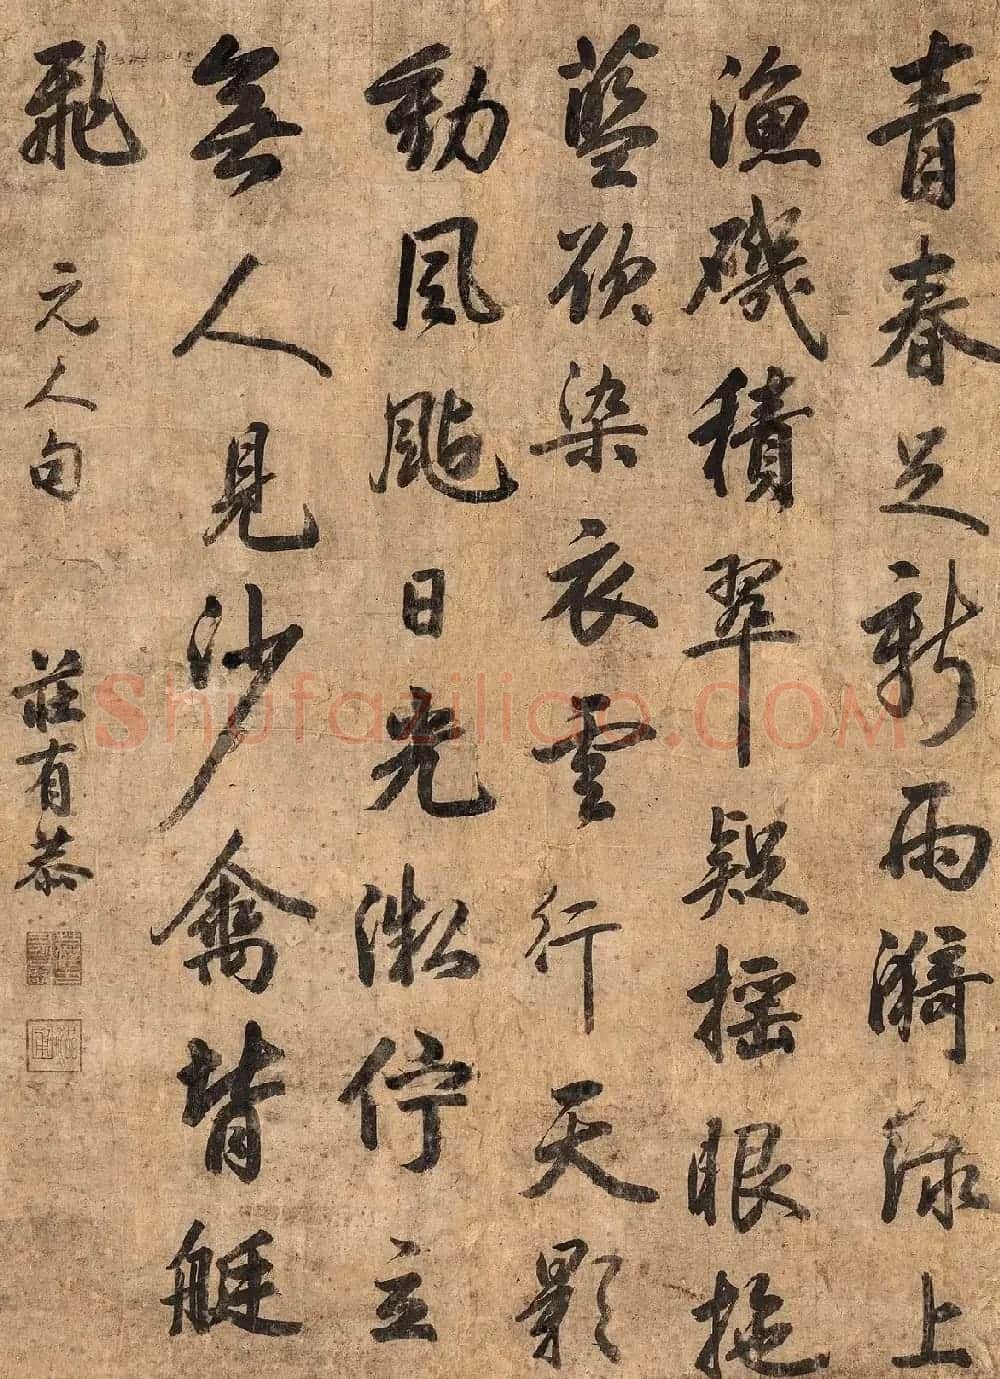 青春足新雨漪渌上
漁磯積翠疑搖眼拖
藍欲染衣雲行天影
動風颭日光微佇立
無人見沙禽背艇
飛
元人句
莊有恭
Shufaziliao.COM